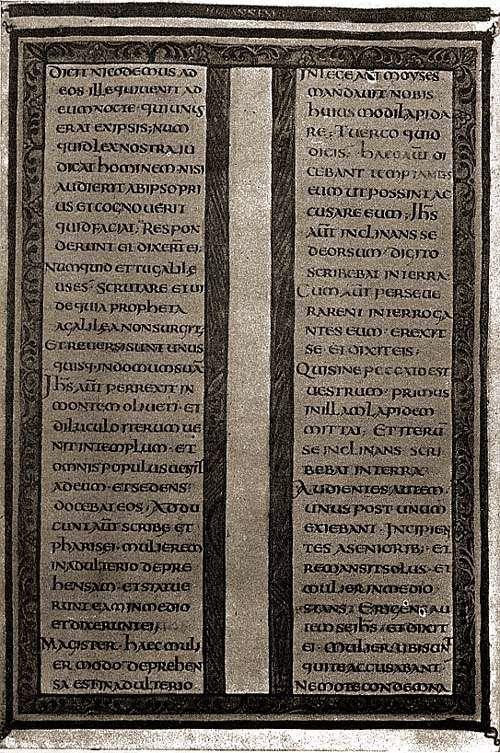 DICIT NICODEMUS AD
EOS ILLE QUI UENIT AD
EUM NOCTE · QUI UNUS
ERAT EX IPSIS; NUM
QUID LEX NOSTRA IU
DICAT hOMINEM NISI
AUDIERIT AB IPSO PRI
US ET COGNOUERIT
QUID FACIAT; RESPON
DERUNT ET DIXERUT EI;
NUMQUID ET TU GALILE
US ES? SCRUTARE ET UI
DE QUIA PROPhETA
A GALILEA NON SURGIT;
ET REUERSI SUNT UNUS
QUISQ; IN DOMUM SUA
IhS AUT PERREXIT IN
MONTEM OLIUETI · ET
DILUCULO ITERUM UE
NIT IN TEMPLUM · ET
OMNIS POPULUS UENIT
AD EUM · ET SEDENS
DOCEBAT EOS; ADDU
CUNT AUT SCRIBE ET
PhARISEI · MULIEREM
IN ADULTERIO DEPRE
hENSAM · ET STATUE
RUNT EAM IN MEDIO
ET DIXERUNT EI;
MAGISTER · hAEC MULI
ER MODO DEPREhEN
SA EST IN ADULTERIO ·
IN LEGE AUT MOYSES
MANDAUIT NOBIS
hUIUS MODI LAPIDA
RE; TU ERGO QUID
DICIS · hAEC AUT DI
CEBANT TEMPTANTES
EUM UT POSSINT AC
CUSARE EUM; IhS
AUT INCLINANS SE
DEORSUM · DIGITO
SCRIBEBAT IN TERRA ·
CUM AUT PERSEUE
RARENT INTERROGA
NTES EUM · EREXIT
SE · ET DIXIT EIS;
QUI SINE PECCATO EST
UESTRUM · PRIMUS
IN ILLAM LAPIDEM
MITTAT · ET ITERU
SE INCLINANS · SCRI
BEBAT IN TERRA ·
AUDIENTES AUTEM ·
UNUS POST UNUM
EXIEBANT · INCIPIEN
TES A SENIORIB; · ET
REMANSIT SOLUS · ET
MULIER IN MEDIO
STANS; ERIGENS AU
TEM SE IhS · ET DIXIT
EI · MULIER UBI SUNT
QUI TE ACCUSABANT
NEMO TE CONDEMNA